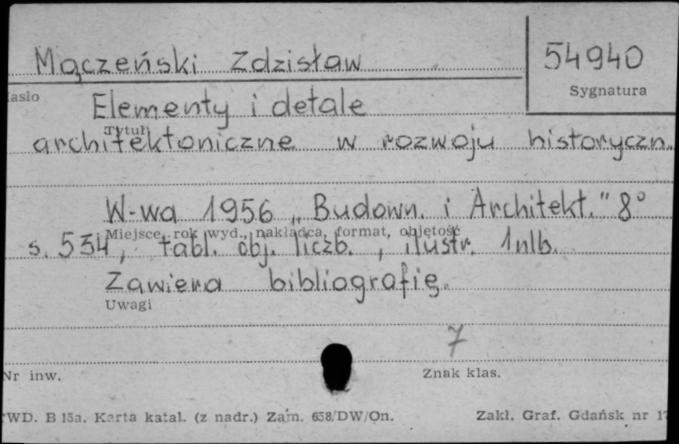 Mączeński Zdzisław
54940
Sygnatura
asło
Elementy i detale
Tytuł
architektoniczne w rozwoju historyczn.
W-wa 1956 „Budown. i Architekt." 8°
Miejsce, rok wyd., nakładca, format, objętość
s. 534, tabl. obj. liczb., ilustr. 1nlb.
Zawiera bibliografię.
Uwagi
7
Nr inw.
Znak klas.
WD. B 15a. Karta katal. (z nadr.) Zam. 658/DW/On.
Zakł. Graf. Gdańsk nr 17